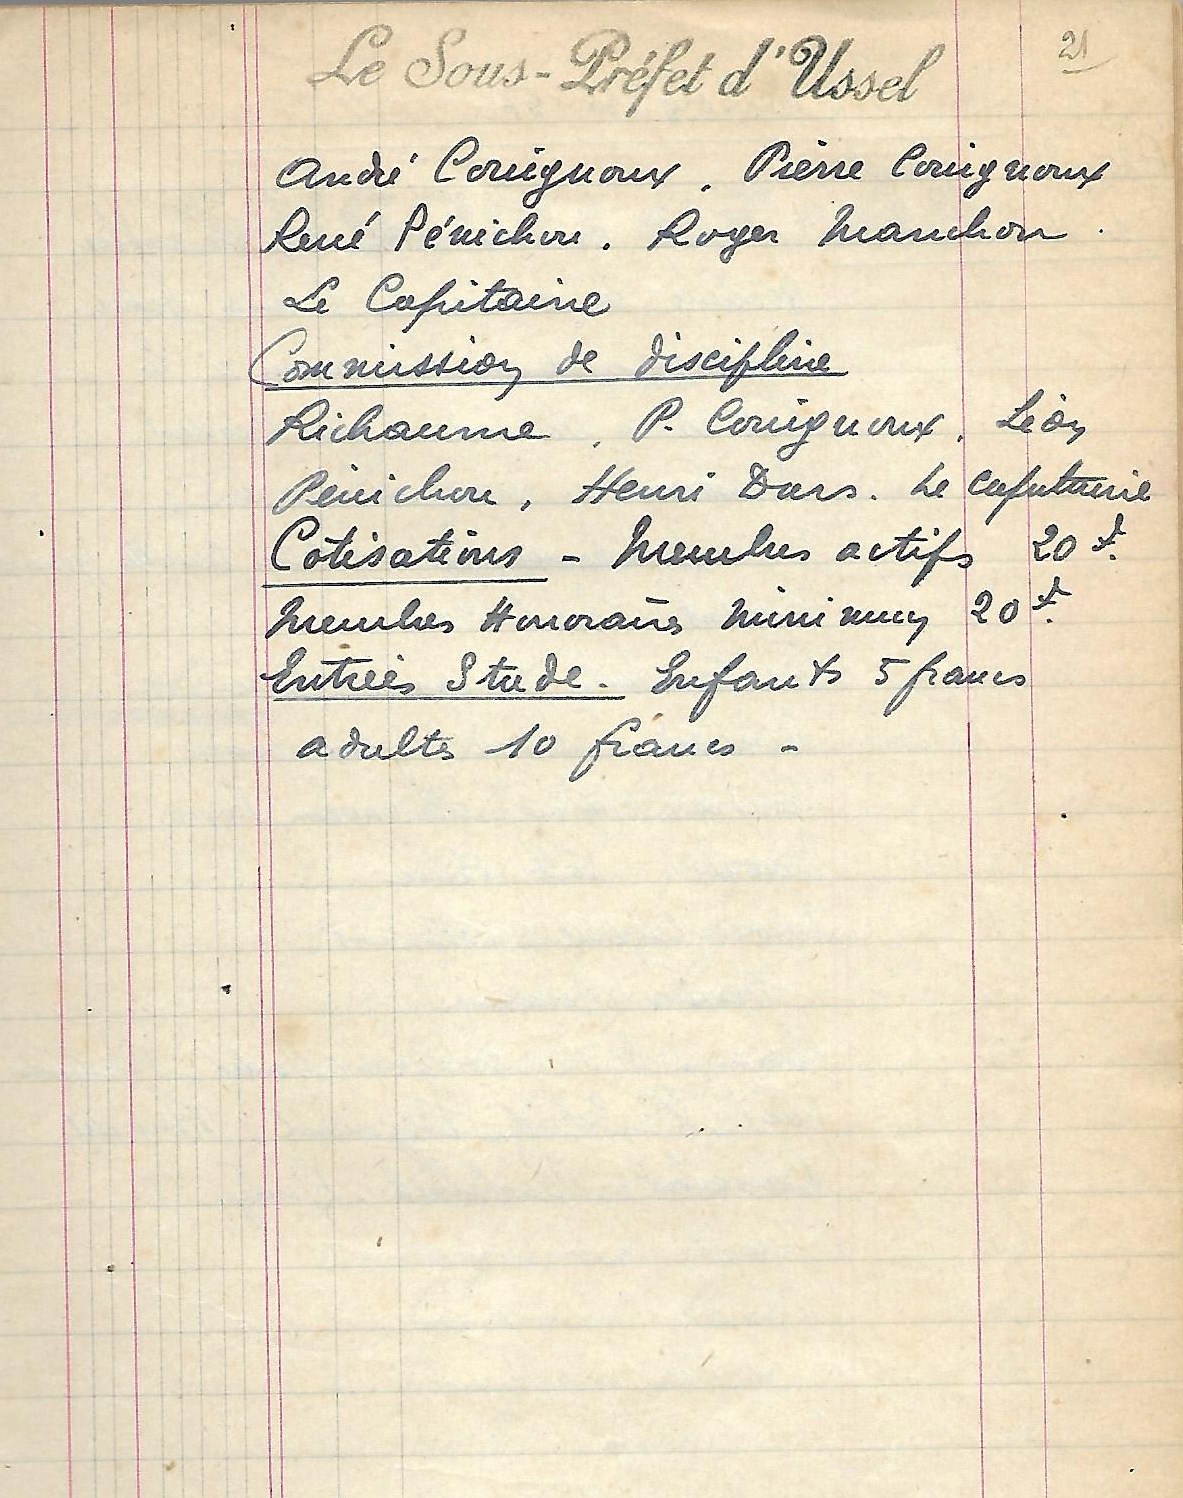 Le Sous-Préfet d'Ussel
21
André Couignoux, Pierre Couignoux
René Pénichon. Roger Manchon.
Le Capitaine
Commission de discipline
Richaume, P. Couignoux, Léon
Pénichon, Henri Dars. Le capitaine
Cotisations - Membres actifs 20 f.
Membres Honoraires minimum 20 f.
Entrées Stade. Enfants 5 francs
adultes 10 francs -